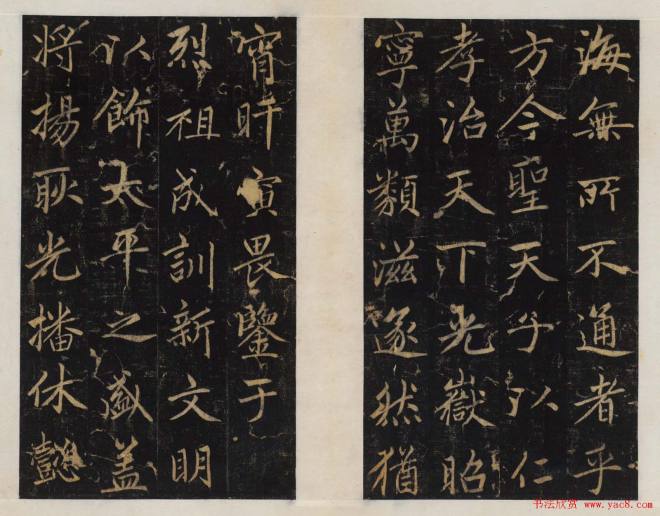 海無所不通者乎
方今聖天子以仁
孝治天下光嶽昭
寧萬類滋遂然猶
宵旰寅畏鑒于
烈祖成訓新文明
以飾太平之盛蓋
將揚耿光播休懿
书法欣赏 www.yac8.com